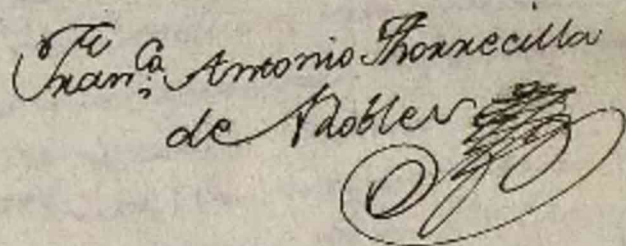 Franco. Antonio Thorrecilla
de Robles